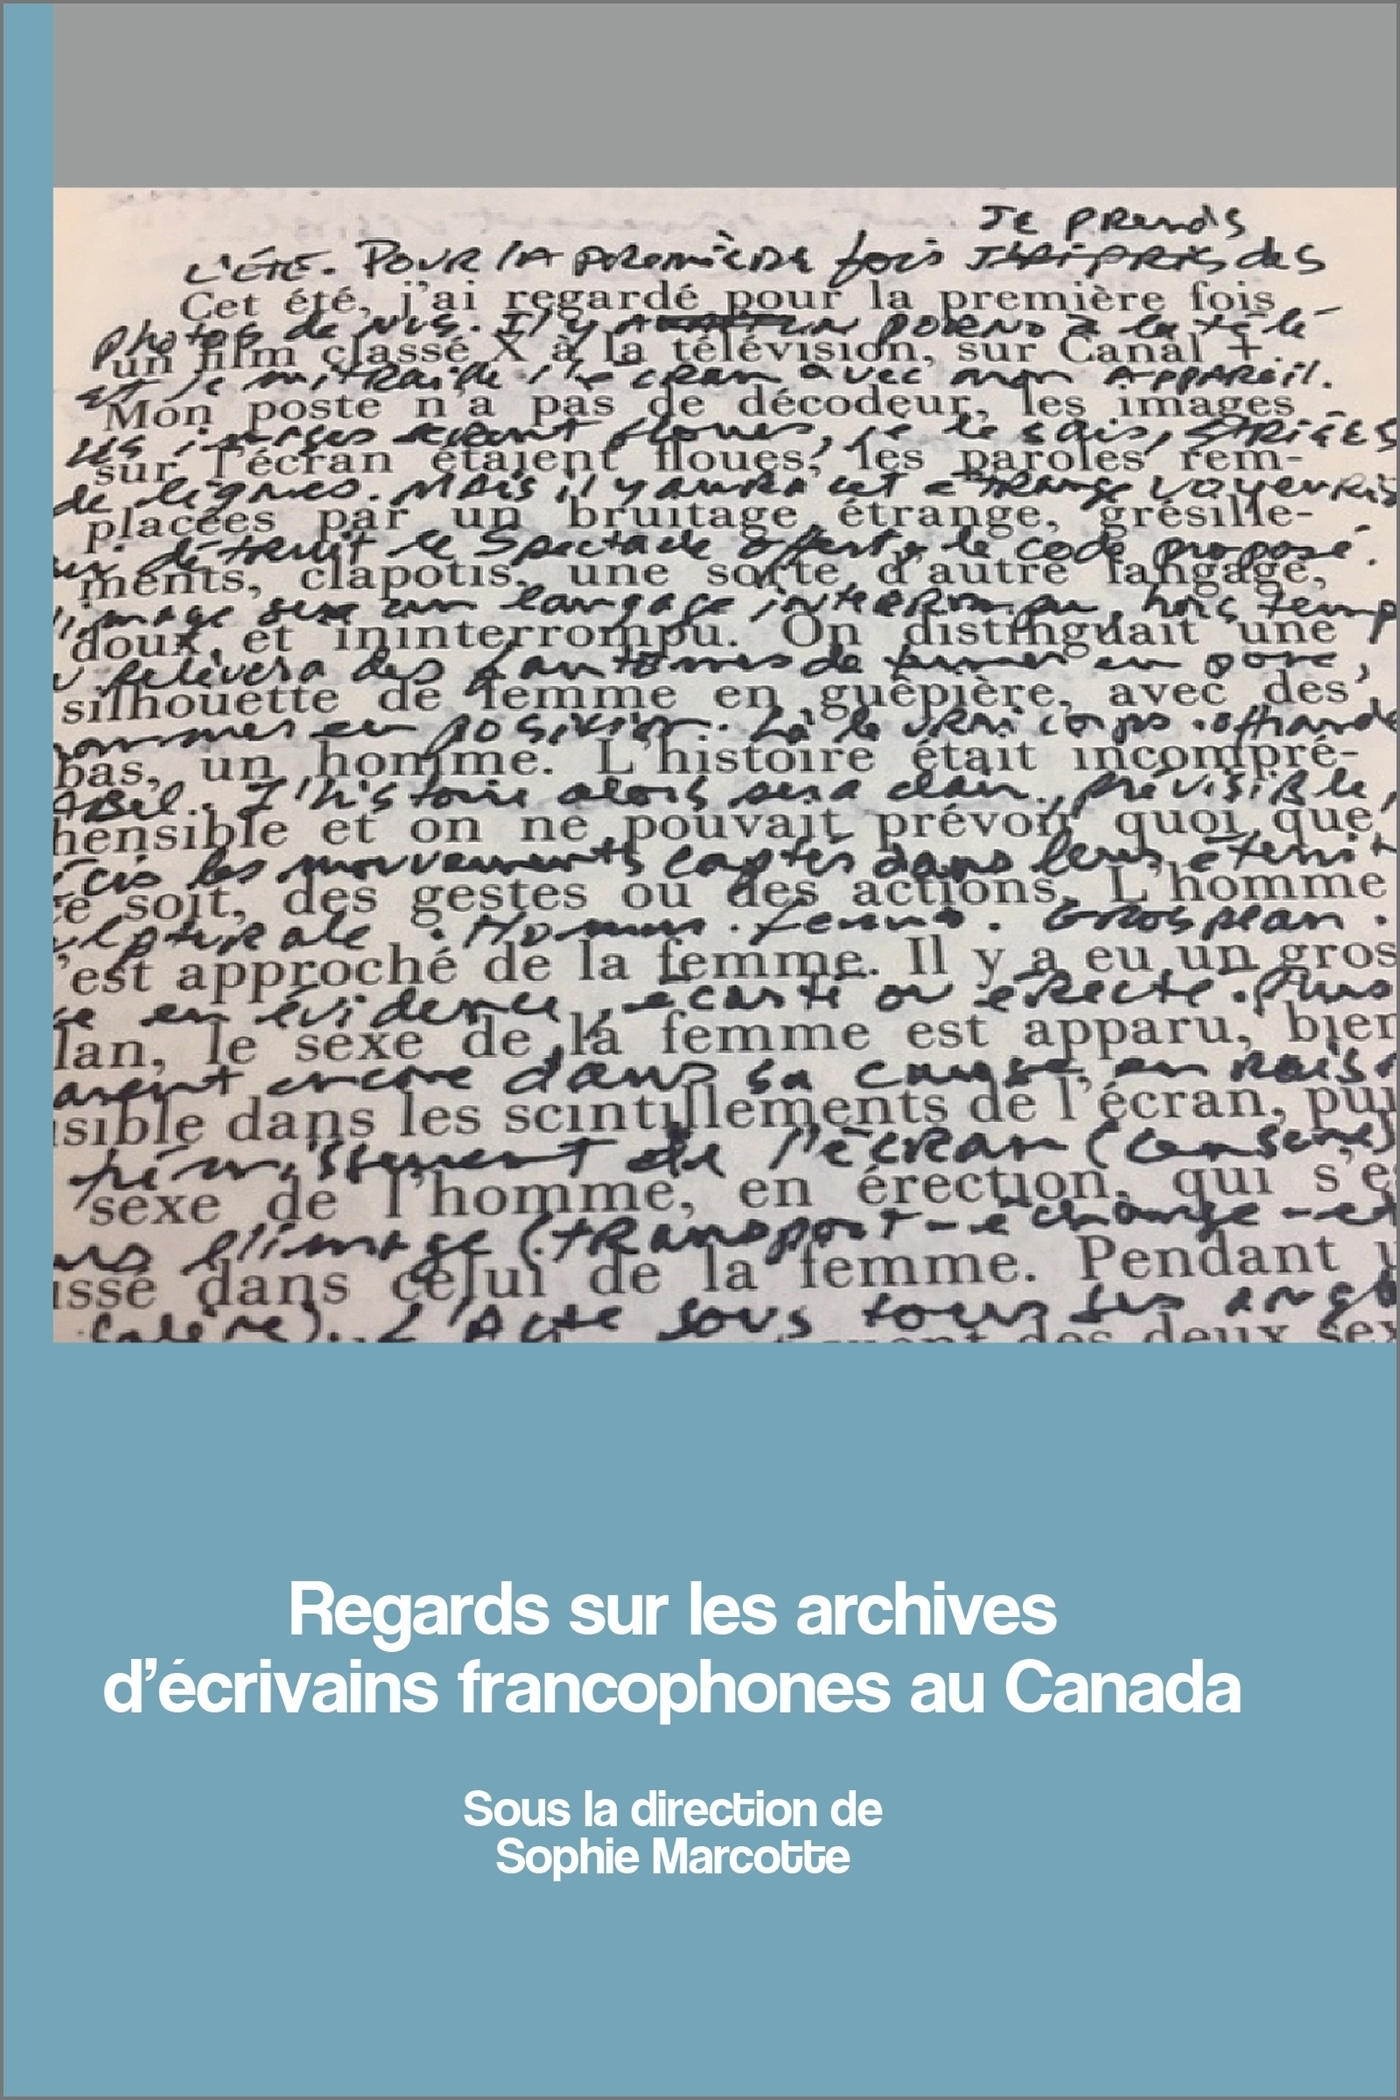 Je prends
L'ÉTÉ. POUR LA première fois des
Cet été, j'ai regardé pour la première fois
photos de nus. Il y a un porno à la télé
un film classé X à la télévision, sur Canal +.
et je mitraille l'écran avec mon appareil.
Mon poste n'a pas de décodeur, les images
les images seront floues, je le sais, striées
sur l'écran étaient floues, les paroles rem-
de lignes. Mais il y aura cet étrange
placées par un bruitage étrange, grésille-
détruit le spectacle offert, le code proposé.
ments, clapotis, une sorte d'autre langage,
l'image sera un langage interrompu, hors temps
doux et ininterrompu. On distinguait une
relèvera des fantômes de en
silhouette de femme en guêpière, avec des
en position. Là le vrai corps
bas, un homme. L'histoire était incompré-
L'histoire alors sera claire, prévisible,
hensible et on ne pouvait prévoir quoi que
les mouvements captés dans leur
ce soit, des gestes ou des actions. L'homme
Homme. femme. Gros plan.
'est approché de la femme. Il y a eu un gros
en évidence, écarté ou érecté. Plus
lan, le sexe de la femme est apparu, bien
encore dans sa
isible dans les scintillements de l'écran, pui
de l'écran (censure)
sexe de l'homme, en érection, qui s'e
l'image (transport - échange - et
issé dans celui de la femme. Pendant u
L'Acte sous tous ses
des deux sex
Regards sur les archives
d'écrivains francophones au Canada
Sous la direction de
Sophie Marcotte